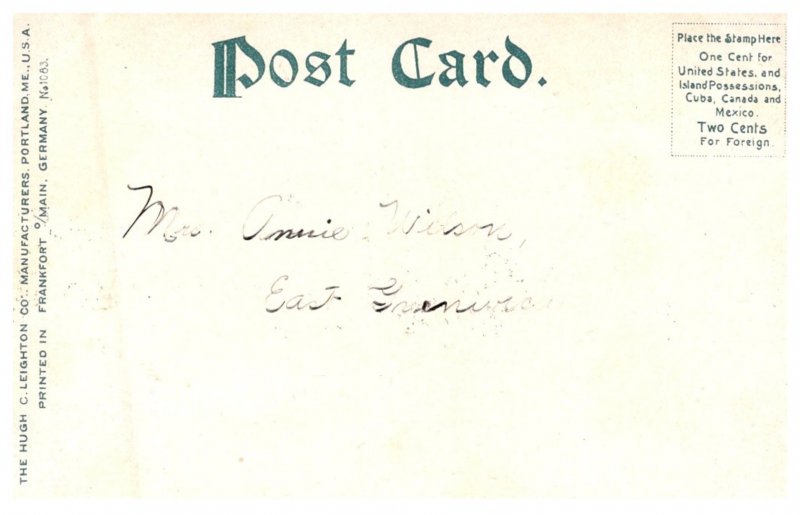 THE HUGH C. LEIGHTON CO., MANUFACTURERS, PORTLAND, ME., U.S.A.
PRINTED IN FRANKFORT o/MAIN, GERMANY No 1083.
Post Card.
Place the Stamp Here
One Cent for
United States, and
Island Possessions,
Cuba, Canada and
Mexico.
Two Cents
For Foreign.
Mrs. Annie Wilson,
East Greenwich